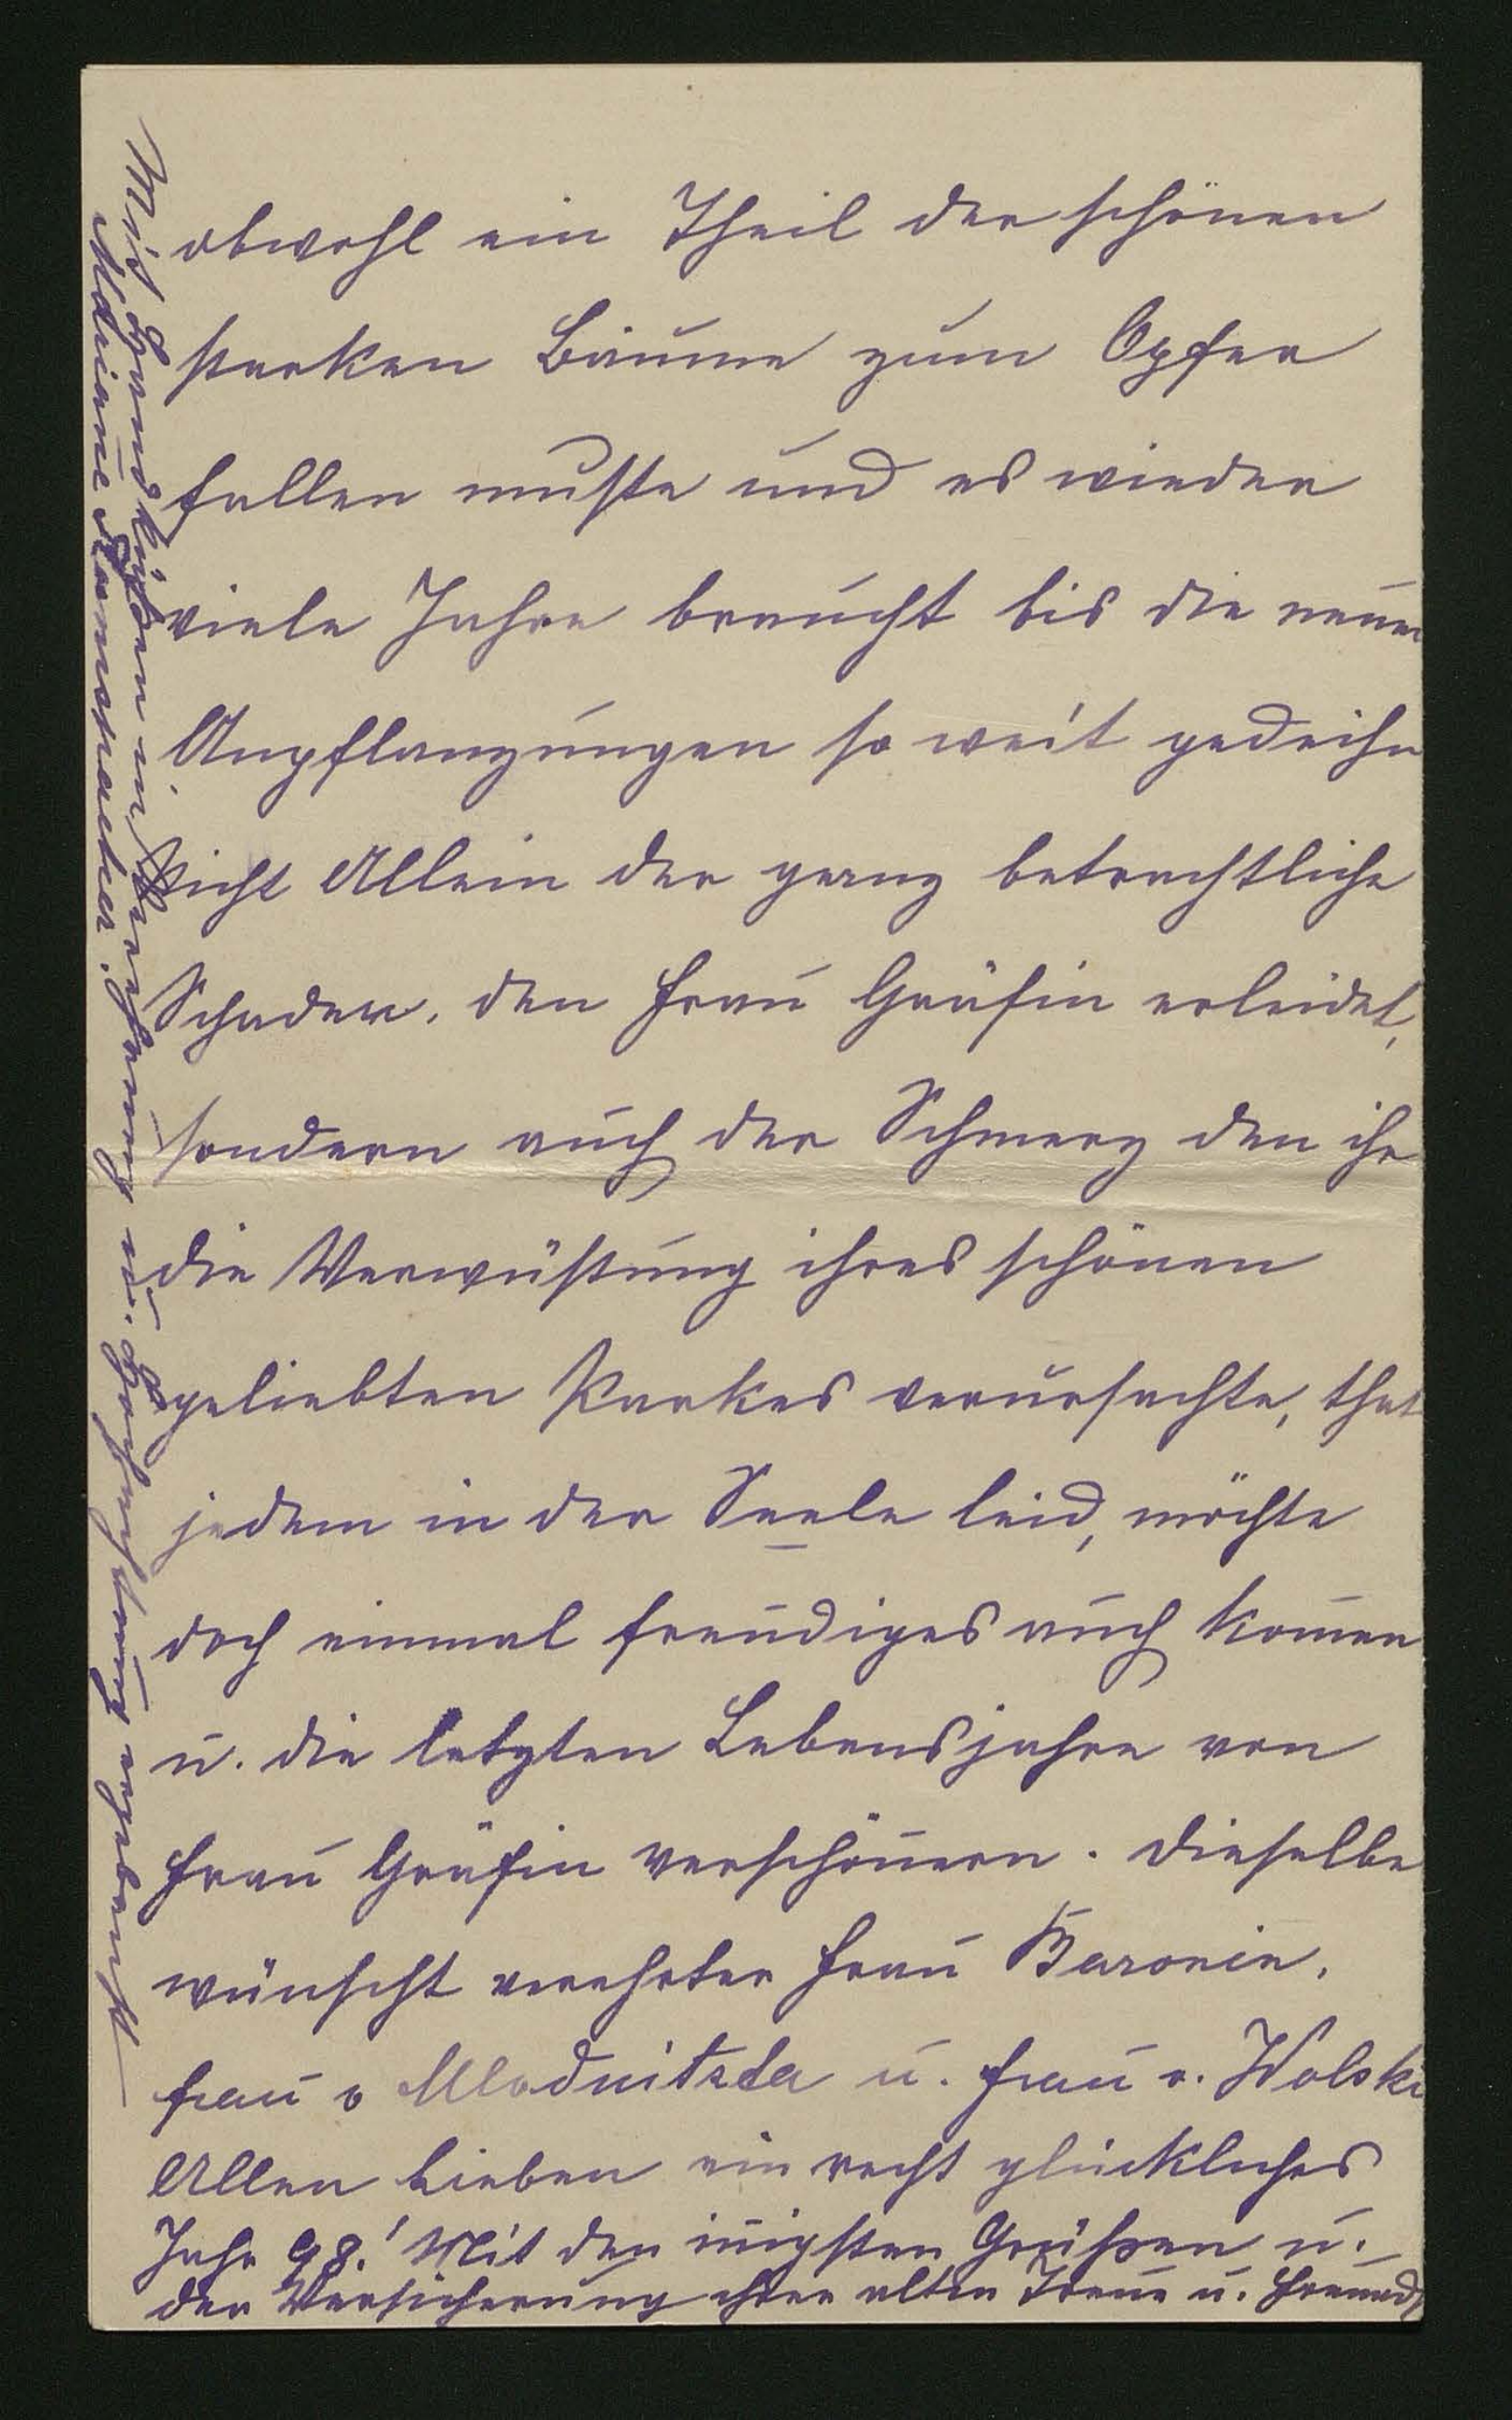 obwohl ein Theil der schönen
starken Bäume zum Opfer
fallen mußte und es wieder
viele Jahre braucht bis die neuen
Anpflanzungen so weit gedeihn
Nicht Allein der ganz betrachtliche
Schaden, den Frau Gräfin erleidet,
sondern auch der Schmerz den ihr
die Verwüstung ihres schönen
geliebten Parkes verursachte, that
jedem in der Seele leid, möchte
doch einmal freudiges auch kom̅en
u. die letzten Lebensjahre von
Frau Gräfin verschönern. Dieselbe
wünscht verehrter Frau Baronin,
Frau v Mladnitzka u. Frau v. Wolski
Allen Lieben ein recht glückliches
Jahr 98! Mit den in̅igsten Grüßen u.
der Versicherung ihrer alten Treue u. Freund
Mit Handküßen in Verehrung u. Hochachtung ergebenst